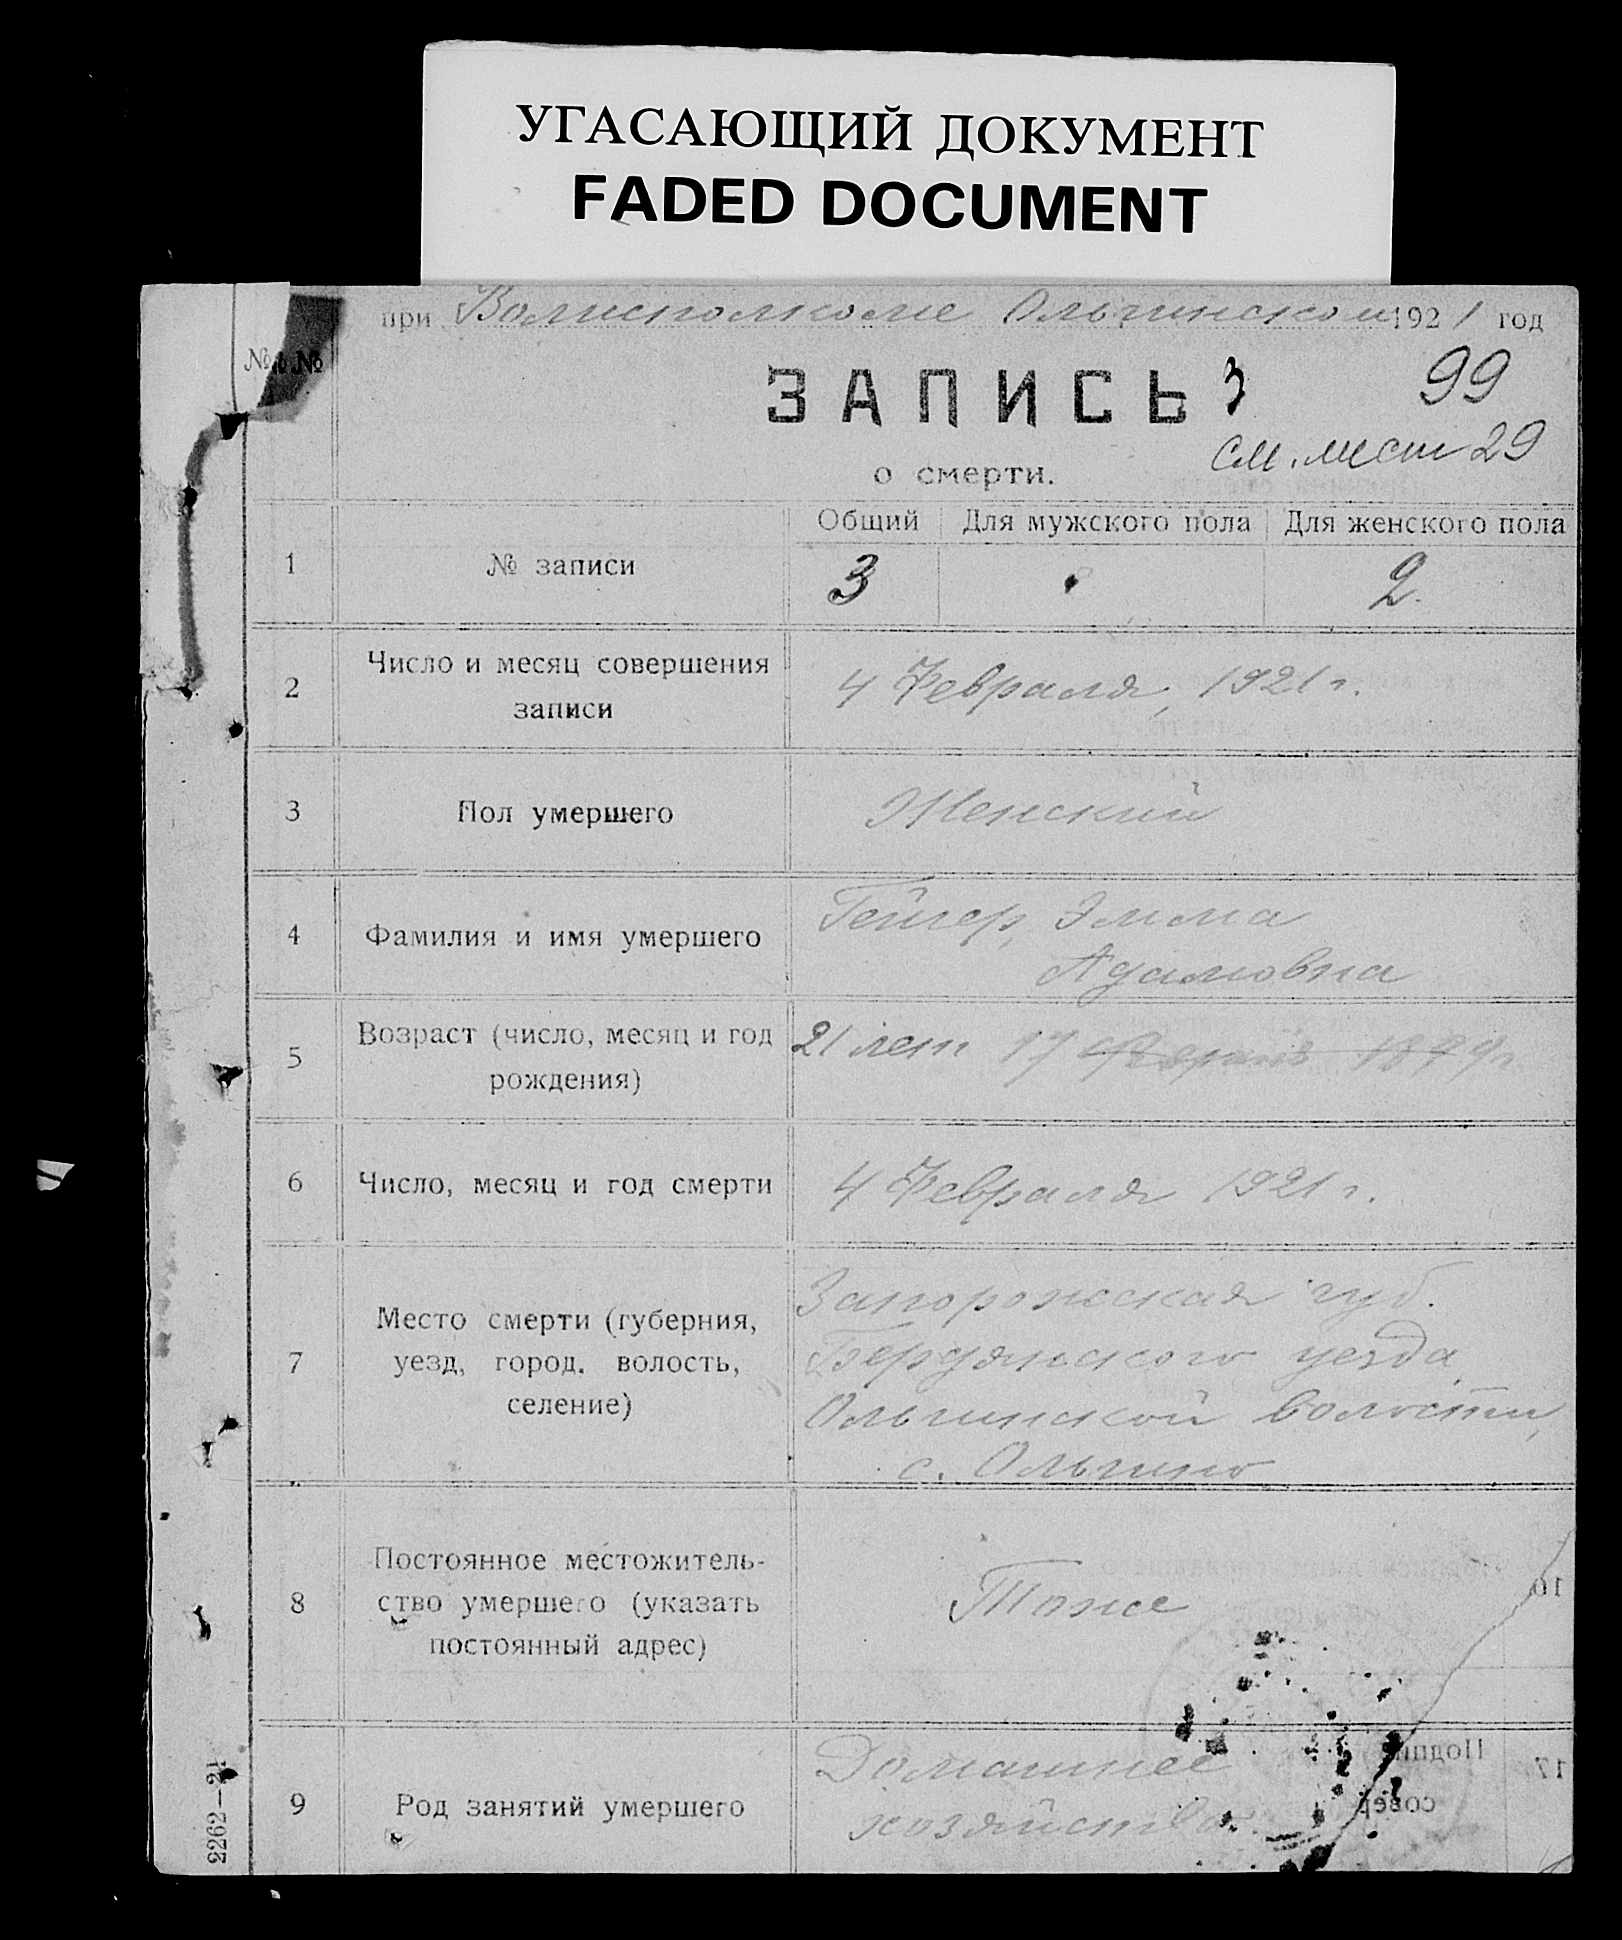 УГАСАЮЩИЙ ДОКУМЕНТ
FADED DOCUMENT
при Волисполкоме Ольгинском 1921 год
№ № №
ЗАПИСЬ 3
99
о смерти.
см. лист 29
Общий Для мужского пола Для женского пола
1 № записи 3 2
2 Число и месяц совершения
записи
4 Февраля, 1921 г.
3 Пол умершего Женский
4 Фамилия и имя умершего
Гейгер, Эмма
Адамовна
5 Возраст (число, месяц и год
рождения)
21 лет 17
6 Число, месяц и год смерти 4 Февраля 1921 г.
7 Место смерти (губерния,
уезд, город, волость,
селение)
Запорожская губ.
Бердянского уезда
Ольгинской волости,
с. Ольгино
8 Постоянное местожитель-
ство умершего (указать
постоянный адрес)
Тоже
9 Род занятий умершего
Домашнее
хозяйство
2262—21